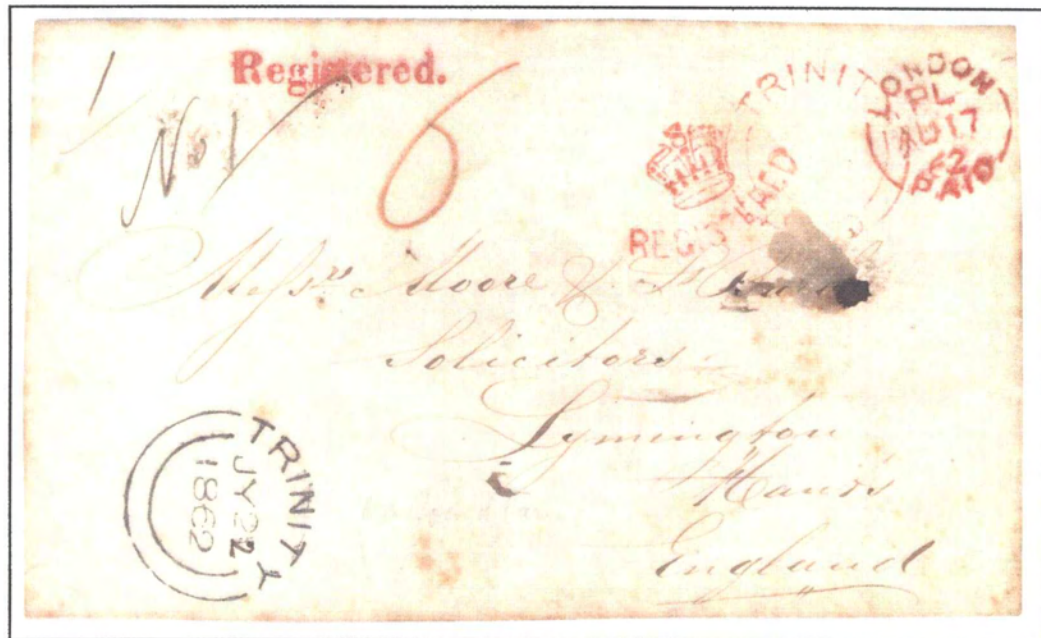 Registered.
1
No 1
6
TRINIT
LONDON
PL
AU 17
62
PAID
REGISTERED
Messrs Moore &
Solicitors
Lymington
Hants
England
TRINITY
JY 22
1862